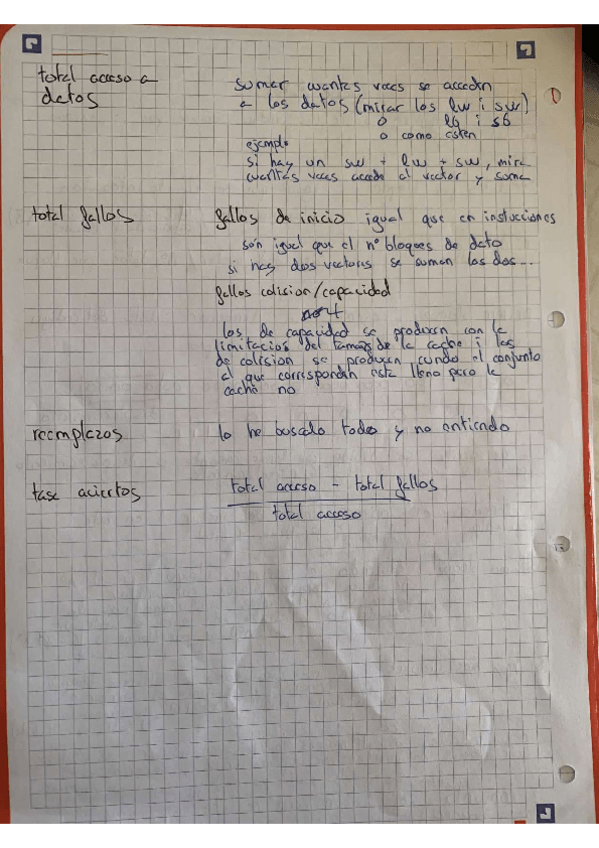 total acceso a
datos
sumar wantas veces se acceden
a los datos (mirar los lw i sw)
o lb i sb
o como esten
ejemplo
si hay un sw + lw + sw, mire
wantas veces accede al vector y suma
total fallos
fallos de inicio igual que en instucciones
son igual que el nº bloques de dato
si hay dos vectores se suman los dos...
fallos colision/capacidad
los de capacidad se producen con la
limitacion del tamaño de la cache i los
de colision se producen cundo el conjunto
al que correspondan esta lleno pero la
cache no
reemplazos
lo he buscado todo y no entiendo
tasa aciertos
total acceso - total fallos
total acceso